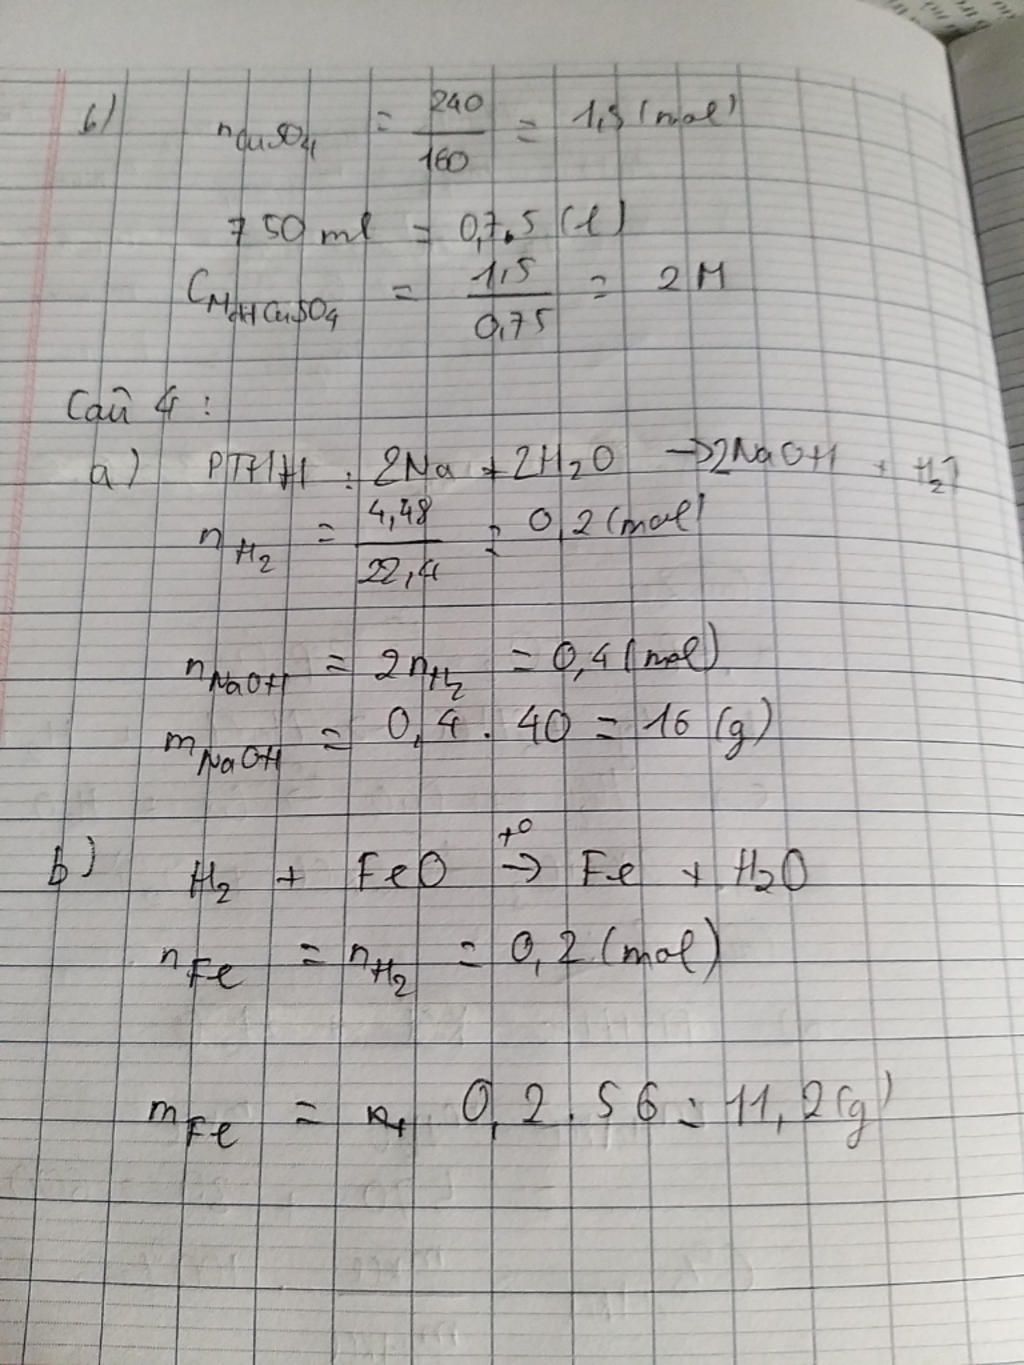 b) nCuSO4 = 240/160 = 1,5 (mol)
750 ml = 0,7.5 (l)
CMddCuSO4 = 1,5/0,75 = 2M
Câu 4 :
a) PTHH : 2Na + 2H2O → 2NaOH + H2↑
nH2 = 4,48/22,4 = 0,2 (mol)
nNaOH = 2nH2 = 0,4 (mol)
mNaOH = 0,4 . 40 = 16 (g)
b) H2 + FeO t°→ Fe + H2O
nFe = nH2 = 0,2 (mol)
mFe = 0,2 . 56 = 11,2 (g)